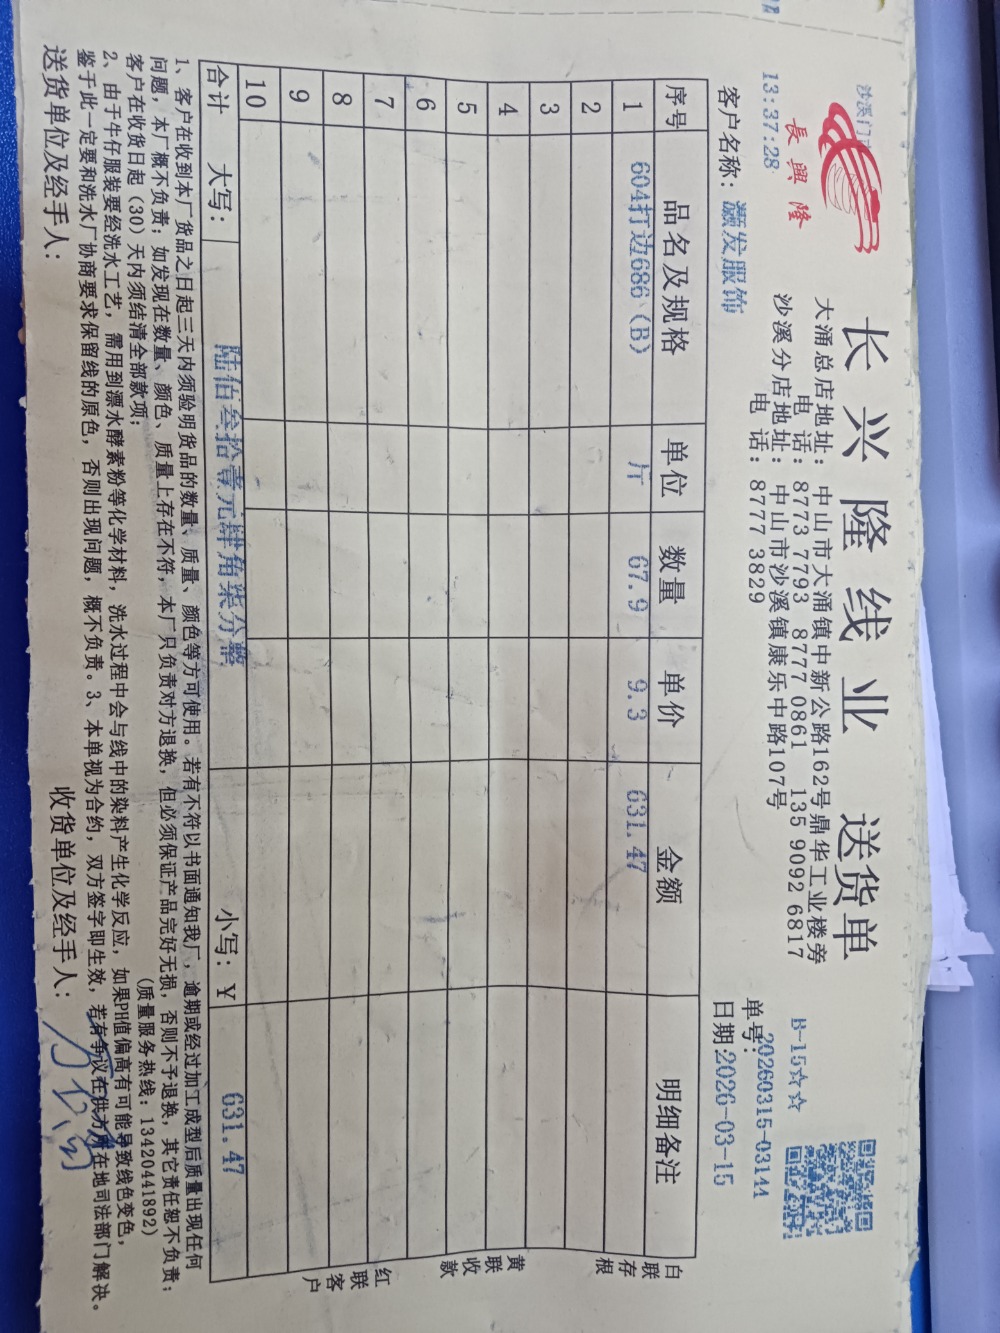 長興隆
长兴隆线业 送货单
大涌总店地址：中山市大涌镇中新公路162号鼎华工业楼旁
电 话：8773 7793 8777 0861 135 9092 6817
沙溪分店地址：中山市沙溪镇康乐中路107号
电 话：8777 3829
沙溪门
13:37:28
B-15☆☆
单号：20260315-03144
客户名称：灏发服饰
日期：2026-03-15
序号 品名及规格 单位 数量 单价 金额 明细备注
1 604打边686（B） 斤 67.9 9.3 631.47
2
3
4
5
6
7
8
9
10
合计 大写： 陆佰叁拾壹元肆角柒分整 小写：￥ 631.47
白联存根
黄联收款
红联客户
1、客户在收到本厂货品之日起三天内须验明货品的数量、质量、颜色等方可使用。若有不符以书面通知我厂，逾期或经过加工成型后质量出现任何
问题，本厂概不负责；如发现在数量、颜色、质量上存在不符，本厂只负责对方退换，但必须保证产品完好无损，否则不予退换，其它责任恕不负责；
客户在收货日起（30）天内须结清全部款项； (质量服务热线：13420441892)
2、由于牛仔服装要经洗水工艺，需用到漂水酵素粉等化学材料，洗水过程中会与线中的染料产生化学反应，如果PH值偏高有可能导致线色变色，
鉴于此一定要和洗水厂协商要求保留线的原色，否则出现问题，概不负责。3、本单视为合约，双方签字即生效，若有争议在供方所在地司法部门解决。
送货单位及经手人： 收货单位及经手人：